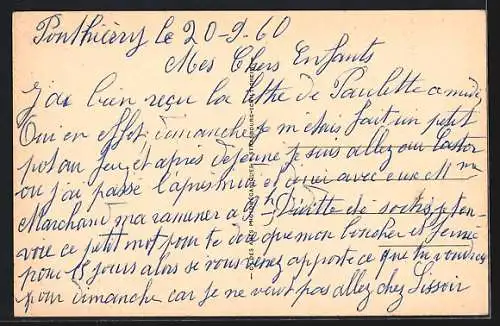 Ponthièry le 20-9-60
Mes Chers Enfants
J'ai bien reçu la lettre de Paulette a midi
Oui en effet, dimanche je m'étais fait un petit
pot au feu, et apres dejeune je suis allez au Castor
ou j'ai passé l'apres midi et avec eux Mme
Marchand ma ramuner a 9h de sorte je ten-
voie ce petit mot pour te dor que mon boucher est fermé
pour 15 jours alors si vous venez apporte ce que tu voudras
pour dimanche car je ne veut pas allez chez Lissoir